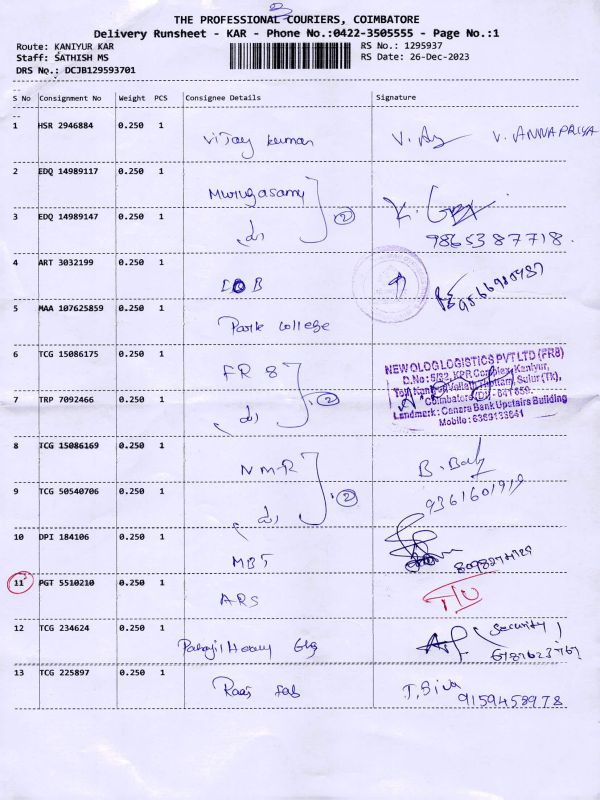 THE PROFESSIONAL COURIERS, COIMBATORE
Delivery Runsheet - KAR - Phone No.:0422-3505555 - Page No.:1
Route: KANIYUR KAR
RS No.: 1295937
Staff: SATHISH MS
RS Date: 26-Dec-2023
DRS No.: DCJB129593701
S No Consignment No Weight PCS Consignee Details Signature
1 HSR 2946884 0.250 1 Vijay kumar V. V. ANNAPRIYA
2 EDQ 14989117 0.250 1 Murugasamy
2
3 EDQ 14989147 0.250 1
9865387718.
4 ART 3032199 0.250 1 IOB
5 MAA 107625859 0.250 1 Park college
6 TCG 15086175 0.250 1 FR 8
NEW OLOG LOGISTICS PVT LTD (FR8)
D.No: 5/92, KPR Complex, Kaniyur,
Thottam, Sulur (TK),
7 TRP 7092466 0.250 1 2
Coimbatore (Dt) - 641 659.
Landmark: Canara Bank Upstairs Building
Mobile: 6369133641
8 TCG 15086169 0.250 1 NMR B.
2
9 TCG 50540706 0.250 1 9361601919
10 DPI 184106 0.250 1 MBT
11 PGT 5510210 0.250 1 ARS
12 TCG 234624 0.250 1 Security
13 TCG 225897 0.250 1 T. Siva
9159458978